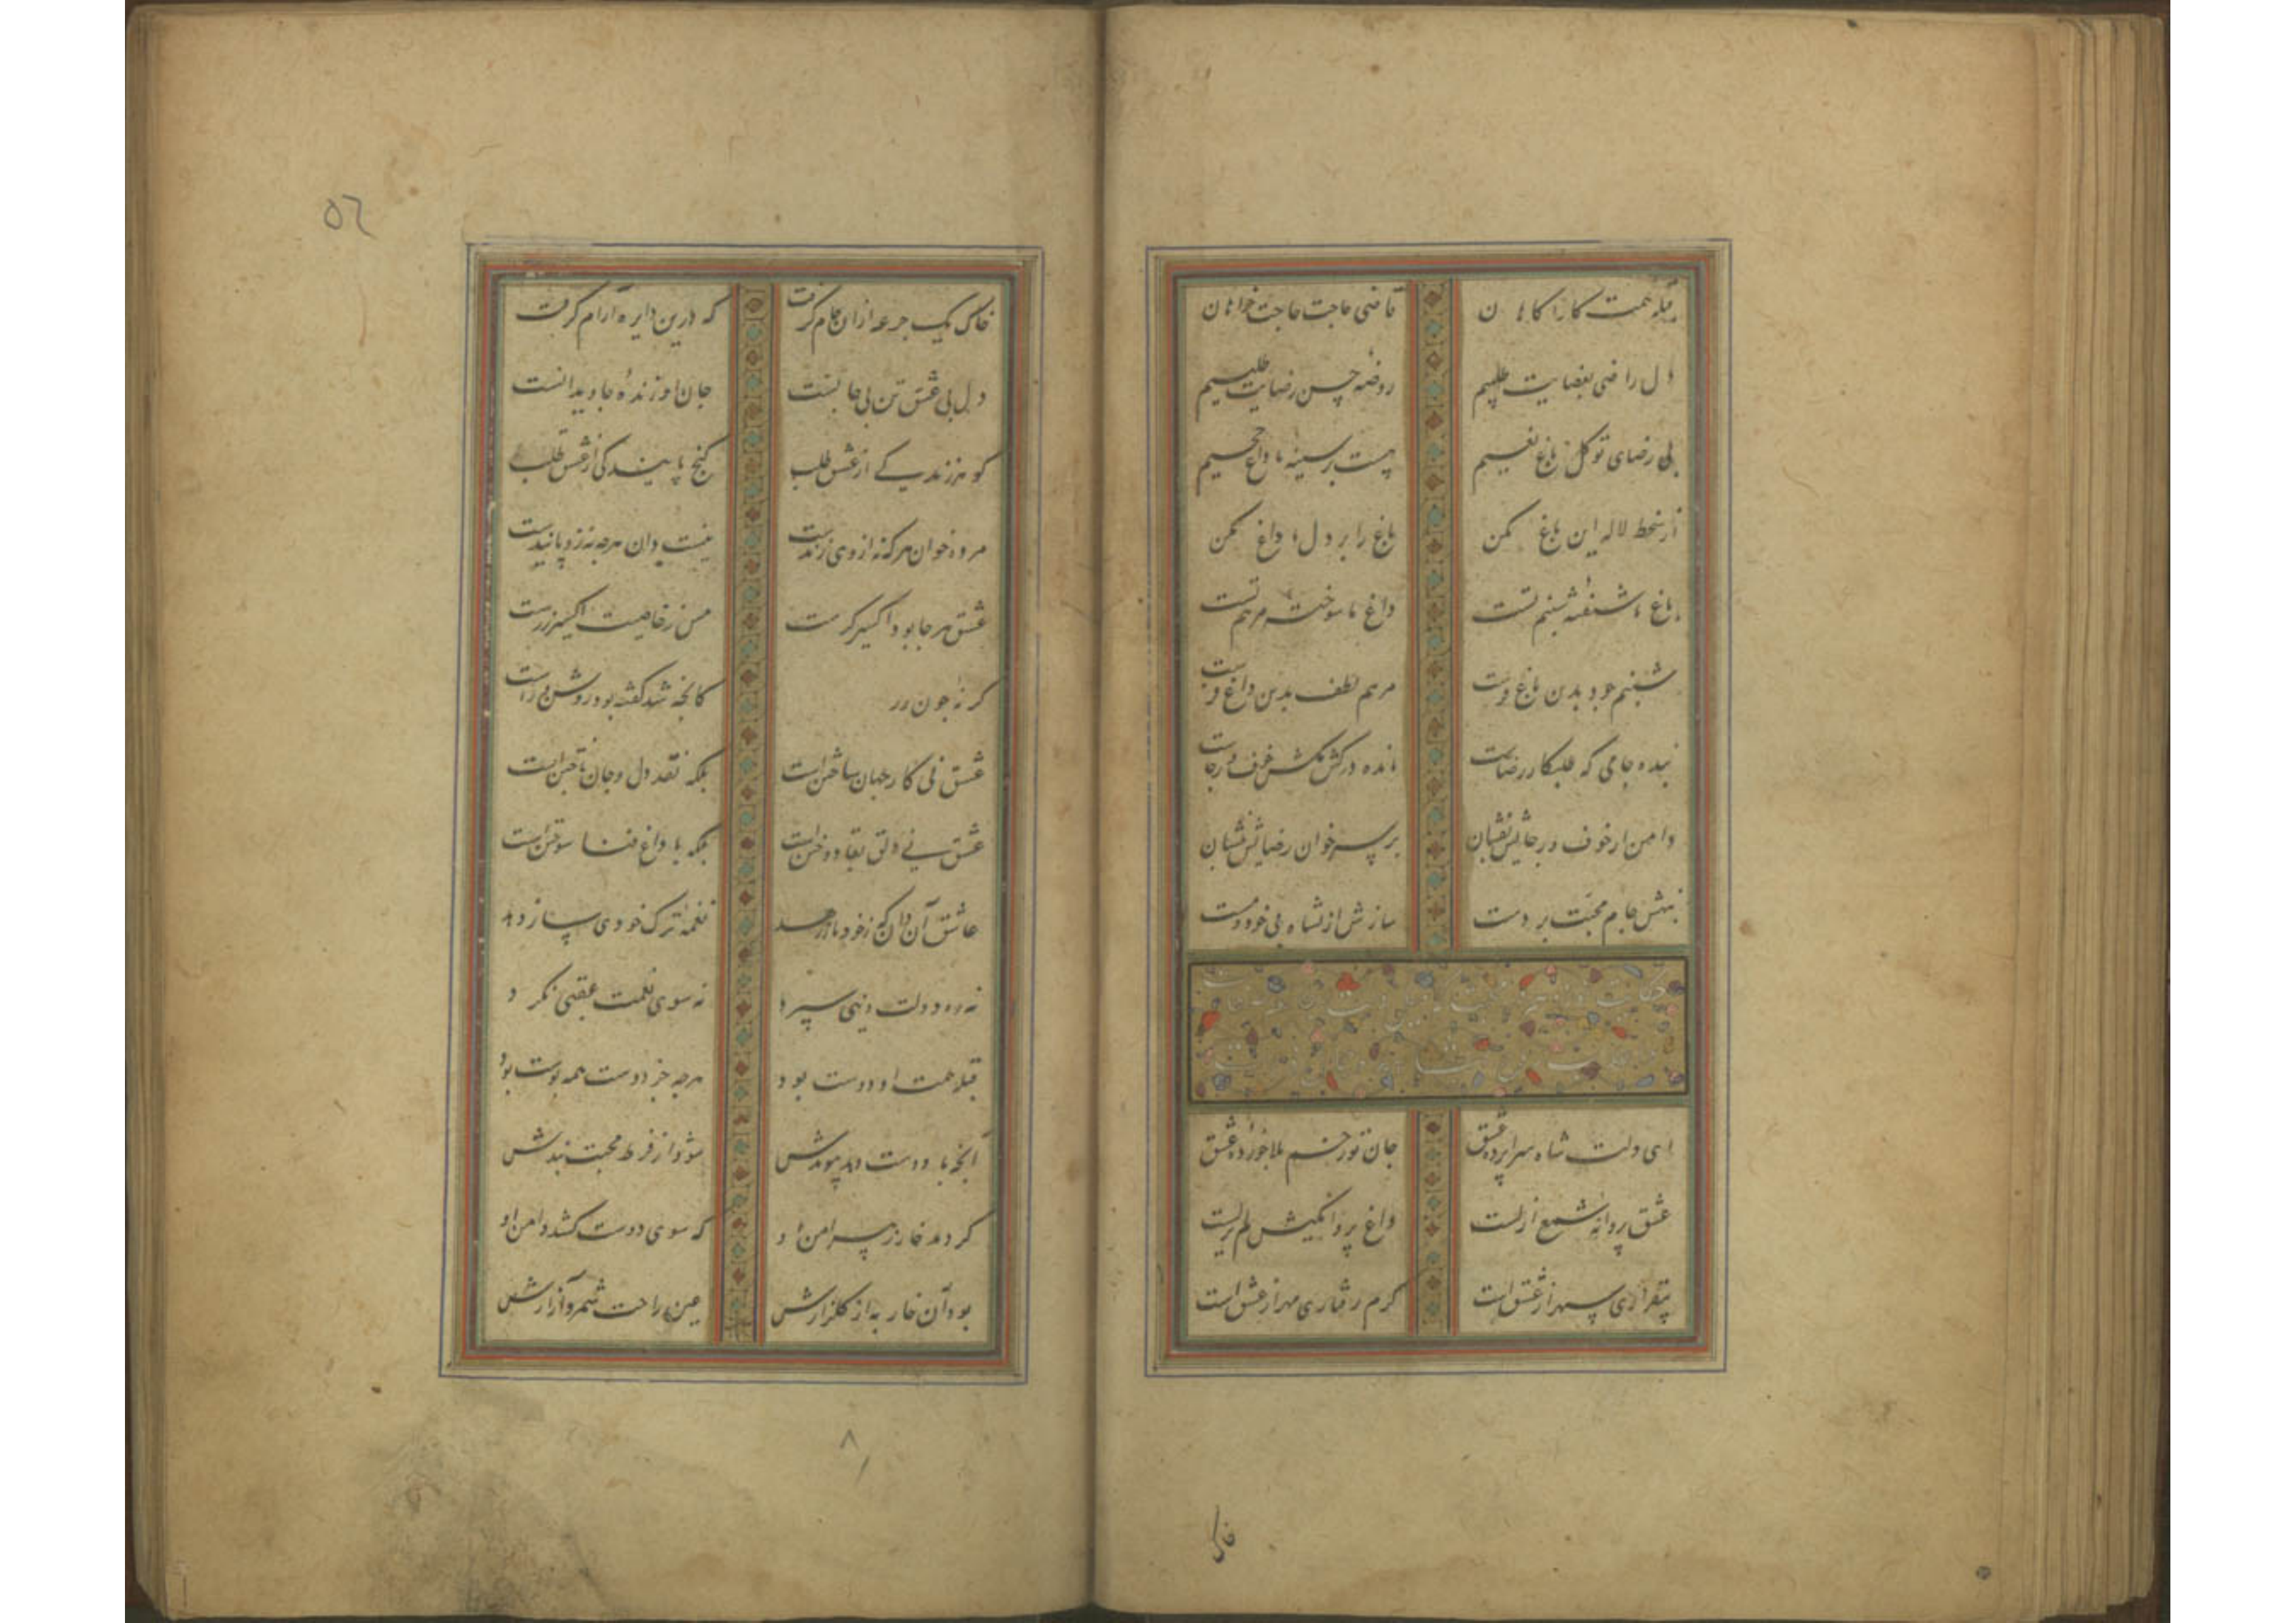 قبله همت کارآکاهان
قاضی حاجت حاجت خواهان
دل راضی بقضایت طلبیم
روضه حسن رضایت طلبیم
بی رضای تو کل باغ نعیم
هست بر سینه ما داغ جحیم
از سخط لاله این باغ مکن
باغ را بر دل ما داغ مکن
باغ ما شکفته شبنم تست
داغ ما سوخته مرهم تست
شبنم جود بدین باغ فرست
مرهم لطف بدین داغ فرست
بنده جامی که طلبکار رضاست
مانده در کش مکش خوف و رجاست
دامن از خوف و رجایش بفشان
بر سر خوان رضایش بنشان
بنهش جام محبت بر دست
سازش از نشاه بی خودی مست
ای دلت شاه سراپرده عشق
جان تو زخم بلا خورده عشق
عشق پروانه شمع ازلست
داغ پروانکیش لم یزلست
بیقراری سپهر از عشق است
کرم رفتاری مهر از عشق است
خاک
٥٦
خاک یک جرعه ازان جام کرفت
که درین دایره آرام کرفت
دل بی عشق تن بی جانست
جان ازو زنده جاویدانست
کوهر زندکی از عشق طلب
کنج پایندکی از عشق طلب
مرده خوان هر که نه از وی زندست
نیست دان هرچه نه زو پایندست
عشق هر جا بود اکسیر کرست
مس ز خاصیت اکسیر زرست
کر نه چون زر
عشق نی کار جهان ساختن است
بلکه نقد دل و جان باختن است
عشق نی دلق بقا دوختن است
بلکه با داغ فنا سوختن است
عاشق آن دان که ز خود باز رهد
نغمه ترک خودی ساز دهد
نه ره دولت دنیی سپرد
نه سوی نعمت عقبی نکرد
قبله همت او دوست بود
هرچه جز دوست همه پوست بود
آنچه با دوست دهد پیوندش
شود از فرط محبت بندش
کر دمد خار ز پیرامن او
که سوی دوست کشد دامن او
بود آن خار به از کلزارش
عین راحت شمرد آزارش
٨